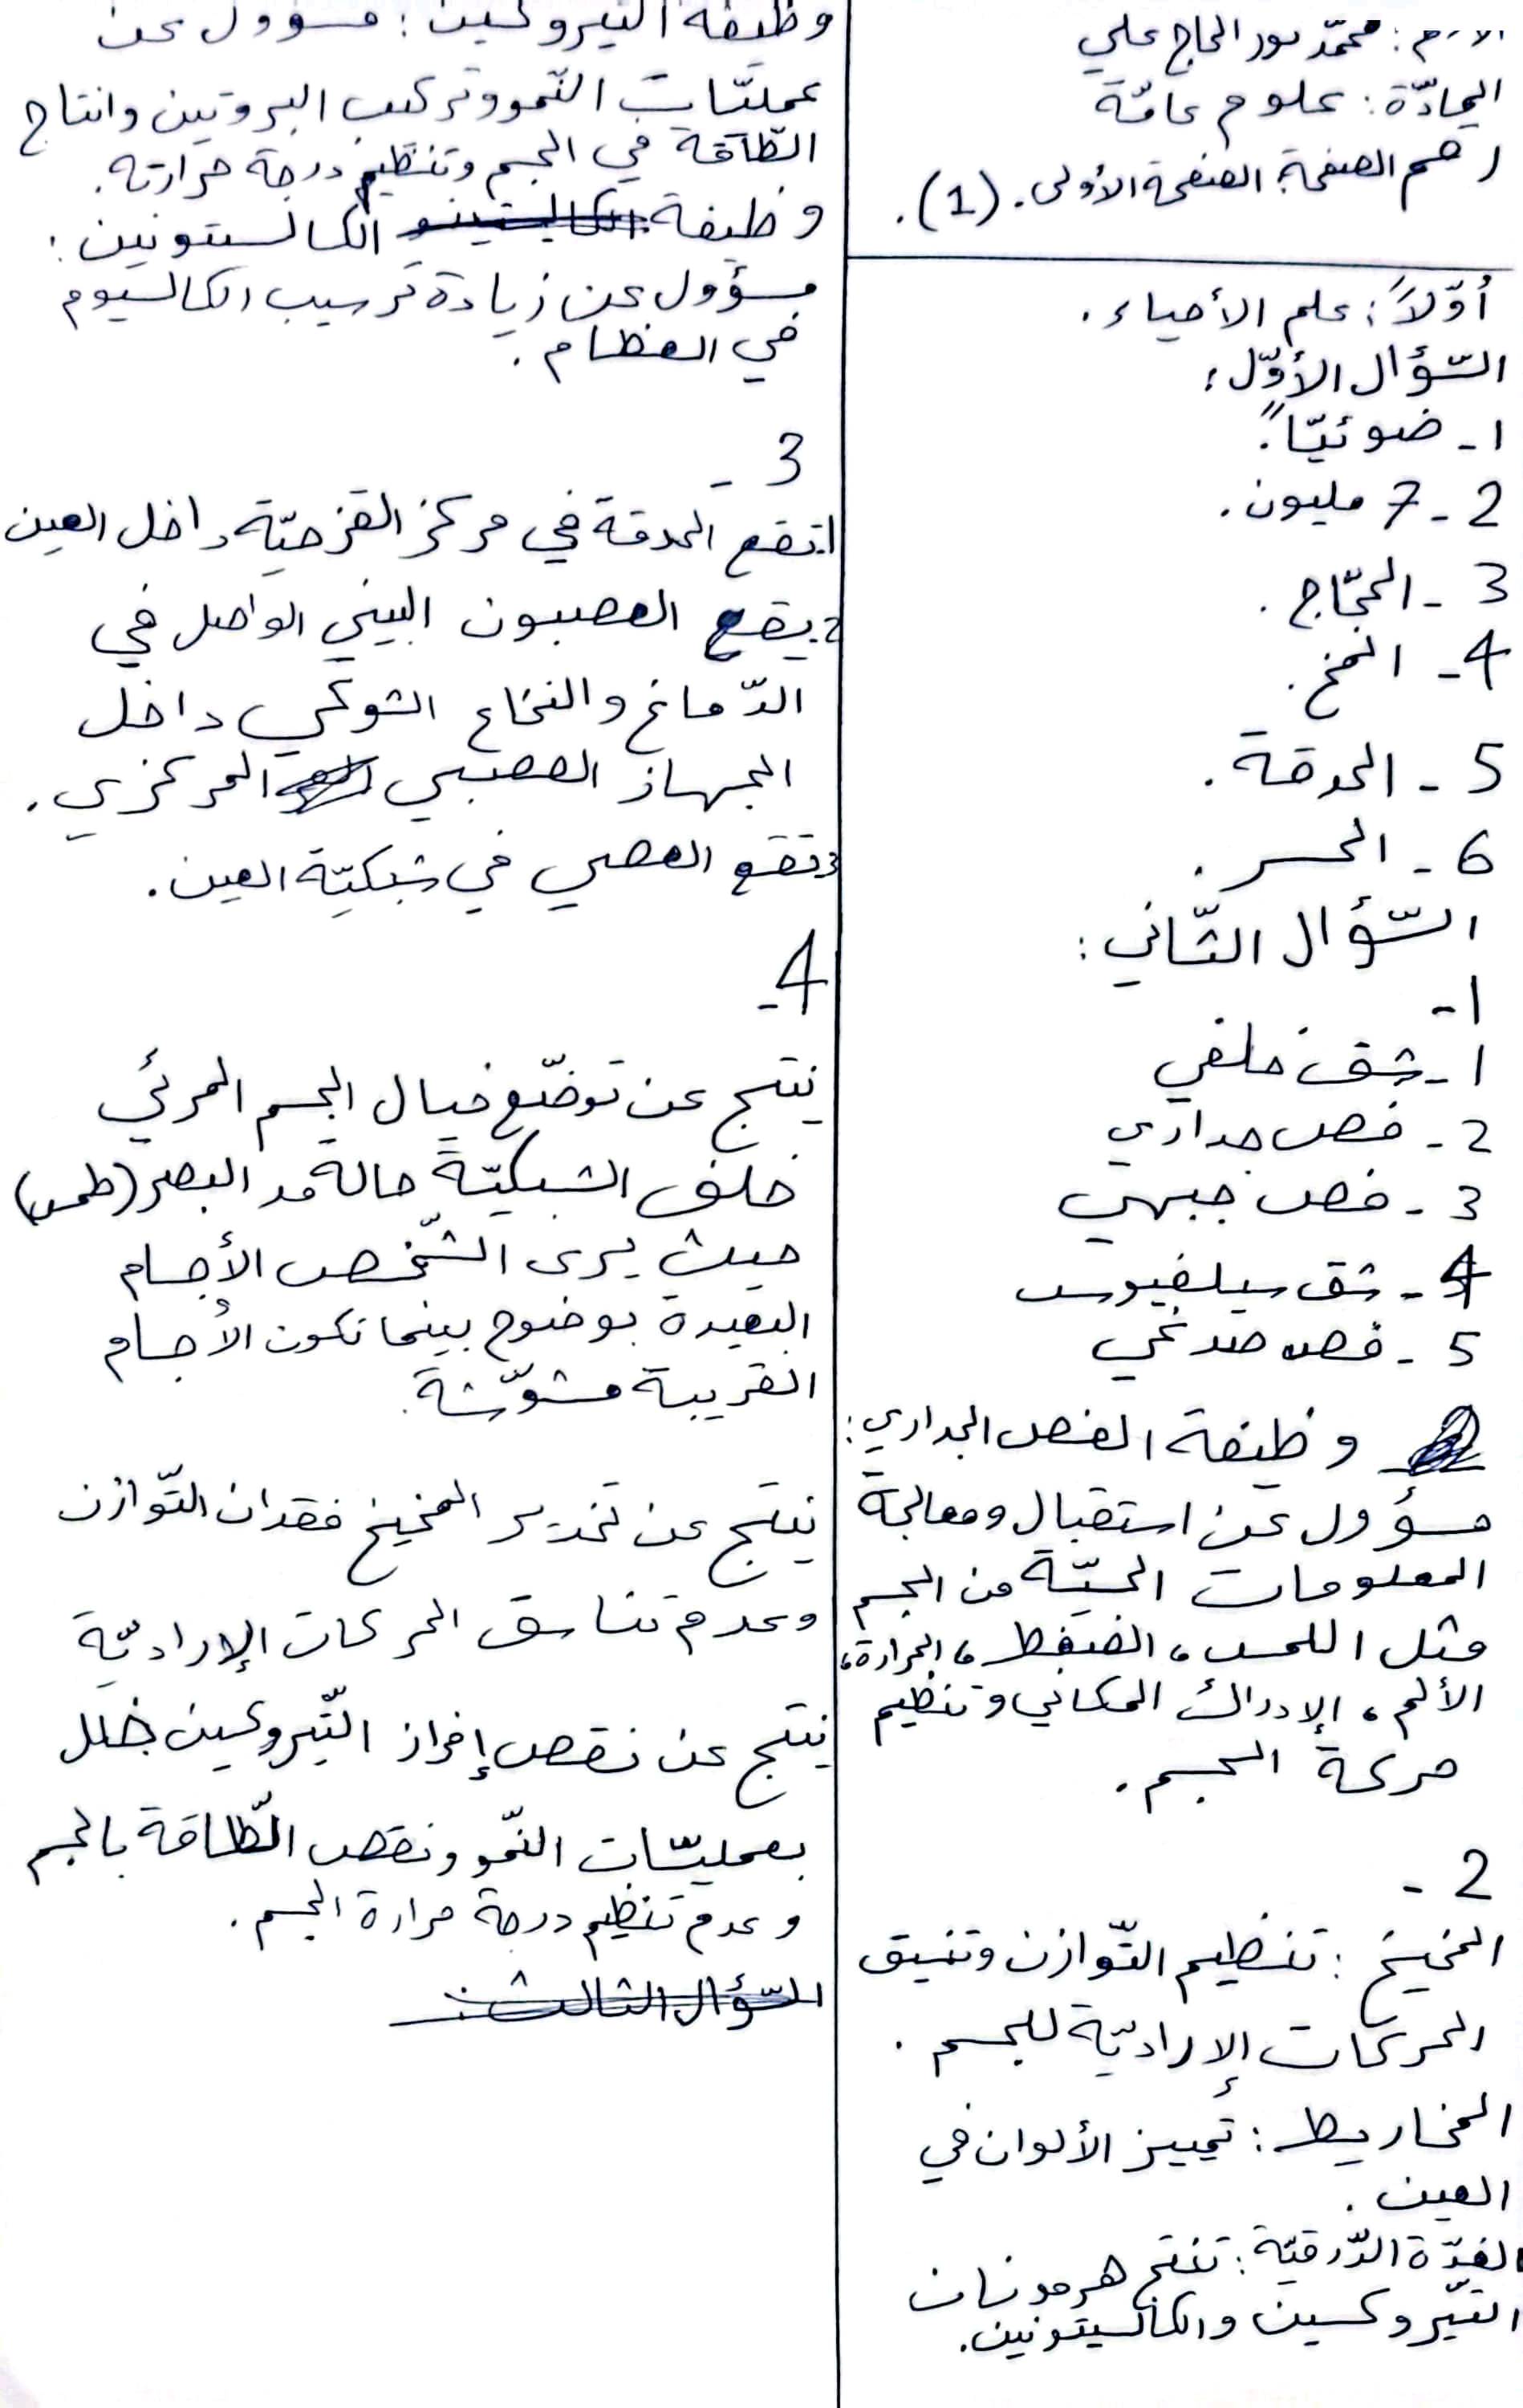 الاسم: محمّد نور الحاج علي
المادّة: علوم عامّة
رقم الصفحة: الصفحة الأولى. (1).
أوّلاً: علم الأحياء.
السّؤال الأوّل:
1- ضوئيّاً.
2- 7 مليون.
3- الحجّاج.
4- المخ.
5- الحدقة.
6- الحسر.
السّؤال الثّاني:
1-
1- شق خلفي
2- فص جداري
3- فص جبهي
4- شق سيلفيوس
5- فص صدغي
وظيفة الفص الجداري:
مسؤول عن استقبال ومعالجة
المعلومات الحسيّة من الجسم
مثل اللمس، الضغط، الحرارة،
الألم، الإدراك المكاني وتنظيم
حركة الجسم.
2-
المخيخ: تنظيم التّوازن وتنسيق
الحركات الإراديّة للجسم.
المخاريط: تمييز الألوان في
العين.
الغدّة الدّرقيّة: تنتج هرمونات
التيّروكسين والكالسيتونين.
وظيفة التيروكسين: مسؤول عن
عمليّات النّمو وتركيب البروتين وانتاج
الطّاقة في الجسم وتنظيم درجة حرارته.
وظيفة الكالستونين:
مسؤول عن زيادة ترسيب الكالسيوم
في العظام.
3-
1. تقع الحدقة في مركز القزحيّة داخل العين
2. يقع العصبون البيني الواصل في
الدّماغ والنخاع الشوكي داخل
الجهاز العصبي المركزي.
3. تقع العصي في شبكيّة العين.
4-
ينتج عن توضّع خيال الجسم المرئي
خلف الشبكيّة حالة مد البصر (طمس)
حيث يرى الشّخص الأجسام
البعيدة بوضوح بينما تكون الأجسام
القريبة مشوّشة.
ينتج عن تخدير المخيخ فقدان التّوازن
وعدم تناسق الحركات الإراديّة
ينتج عن نقص إفراز التّيروكسين خلل
بعمليّات النّمو ونقص الطّاقة بالجسم
وعدم تنظيم درجة حرارة الجسم.
السّؤال الثالث: